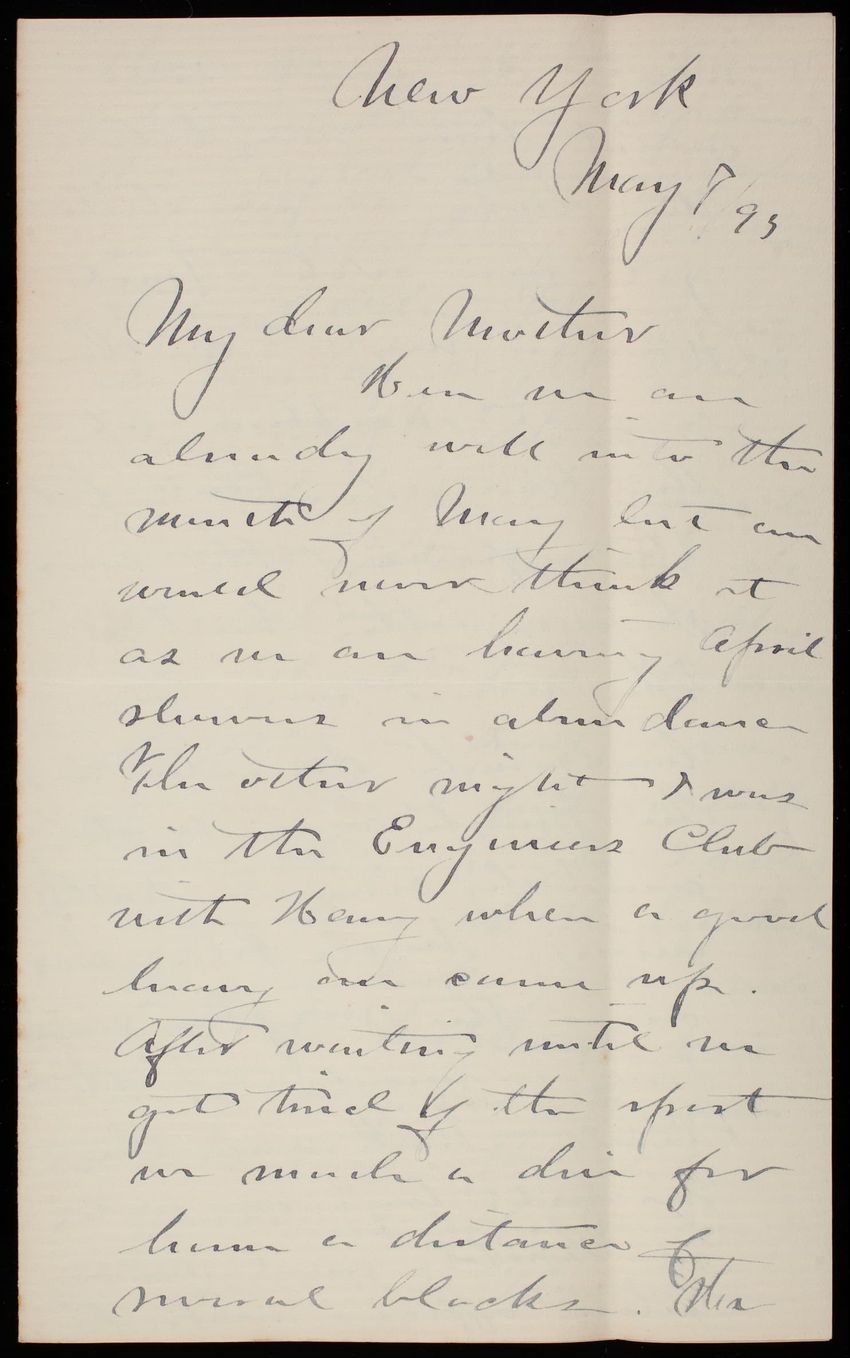 New York
May 7/93
My dear Mother
Here we are
already well into the
month of May but one
would never think it
as we are having April
showers in abundance
The other night I was
in the Engineers Club
with Harry when a good
heavy one came up.
After waiting until we
got tired of the sport
we made a dive for
home a distance of
several blocks. The